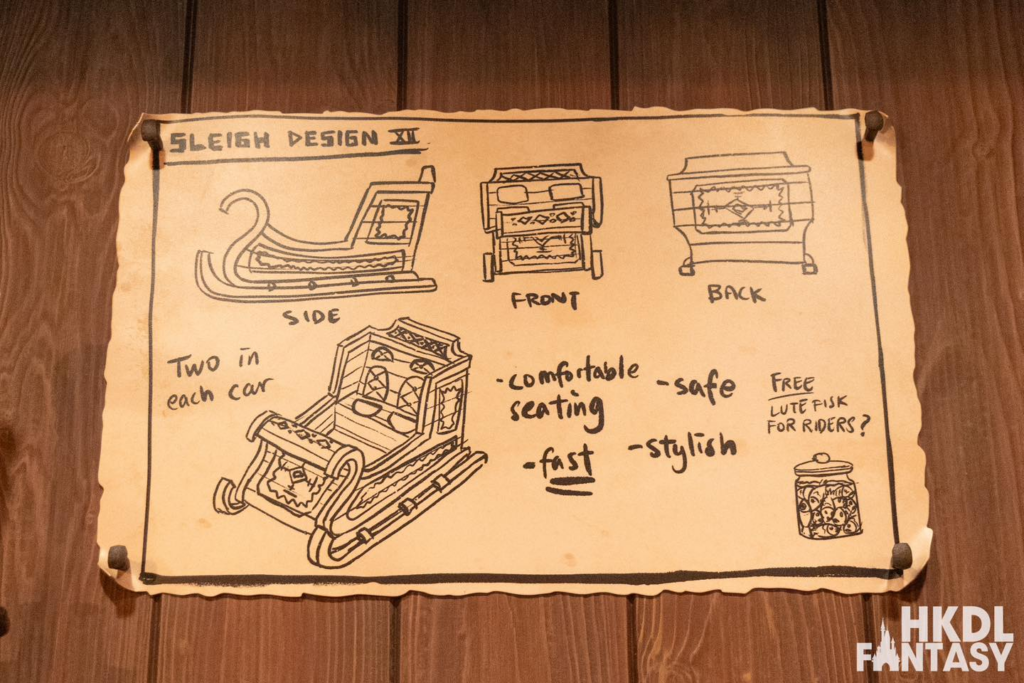 SLEIGH DESIGN XII
SIDE
FRONT
BACK
Two in
each car
-comfortable
seating
-fast
-safe
-stylish
FREE
LUTEFISK
FOR RIDERS?
HKDL
FANTASY